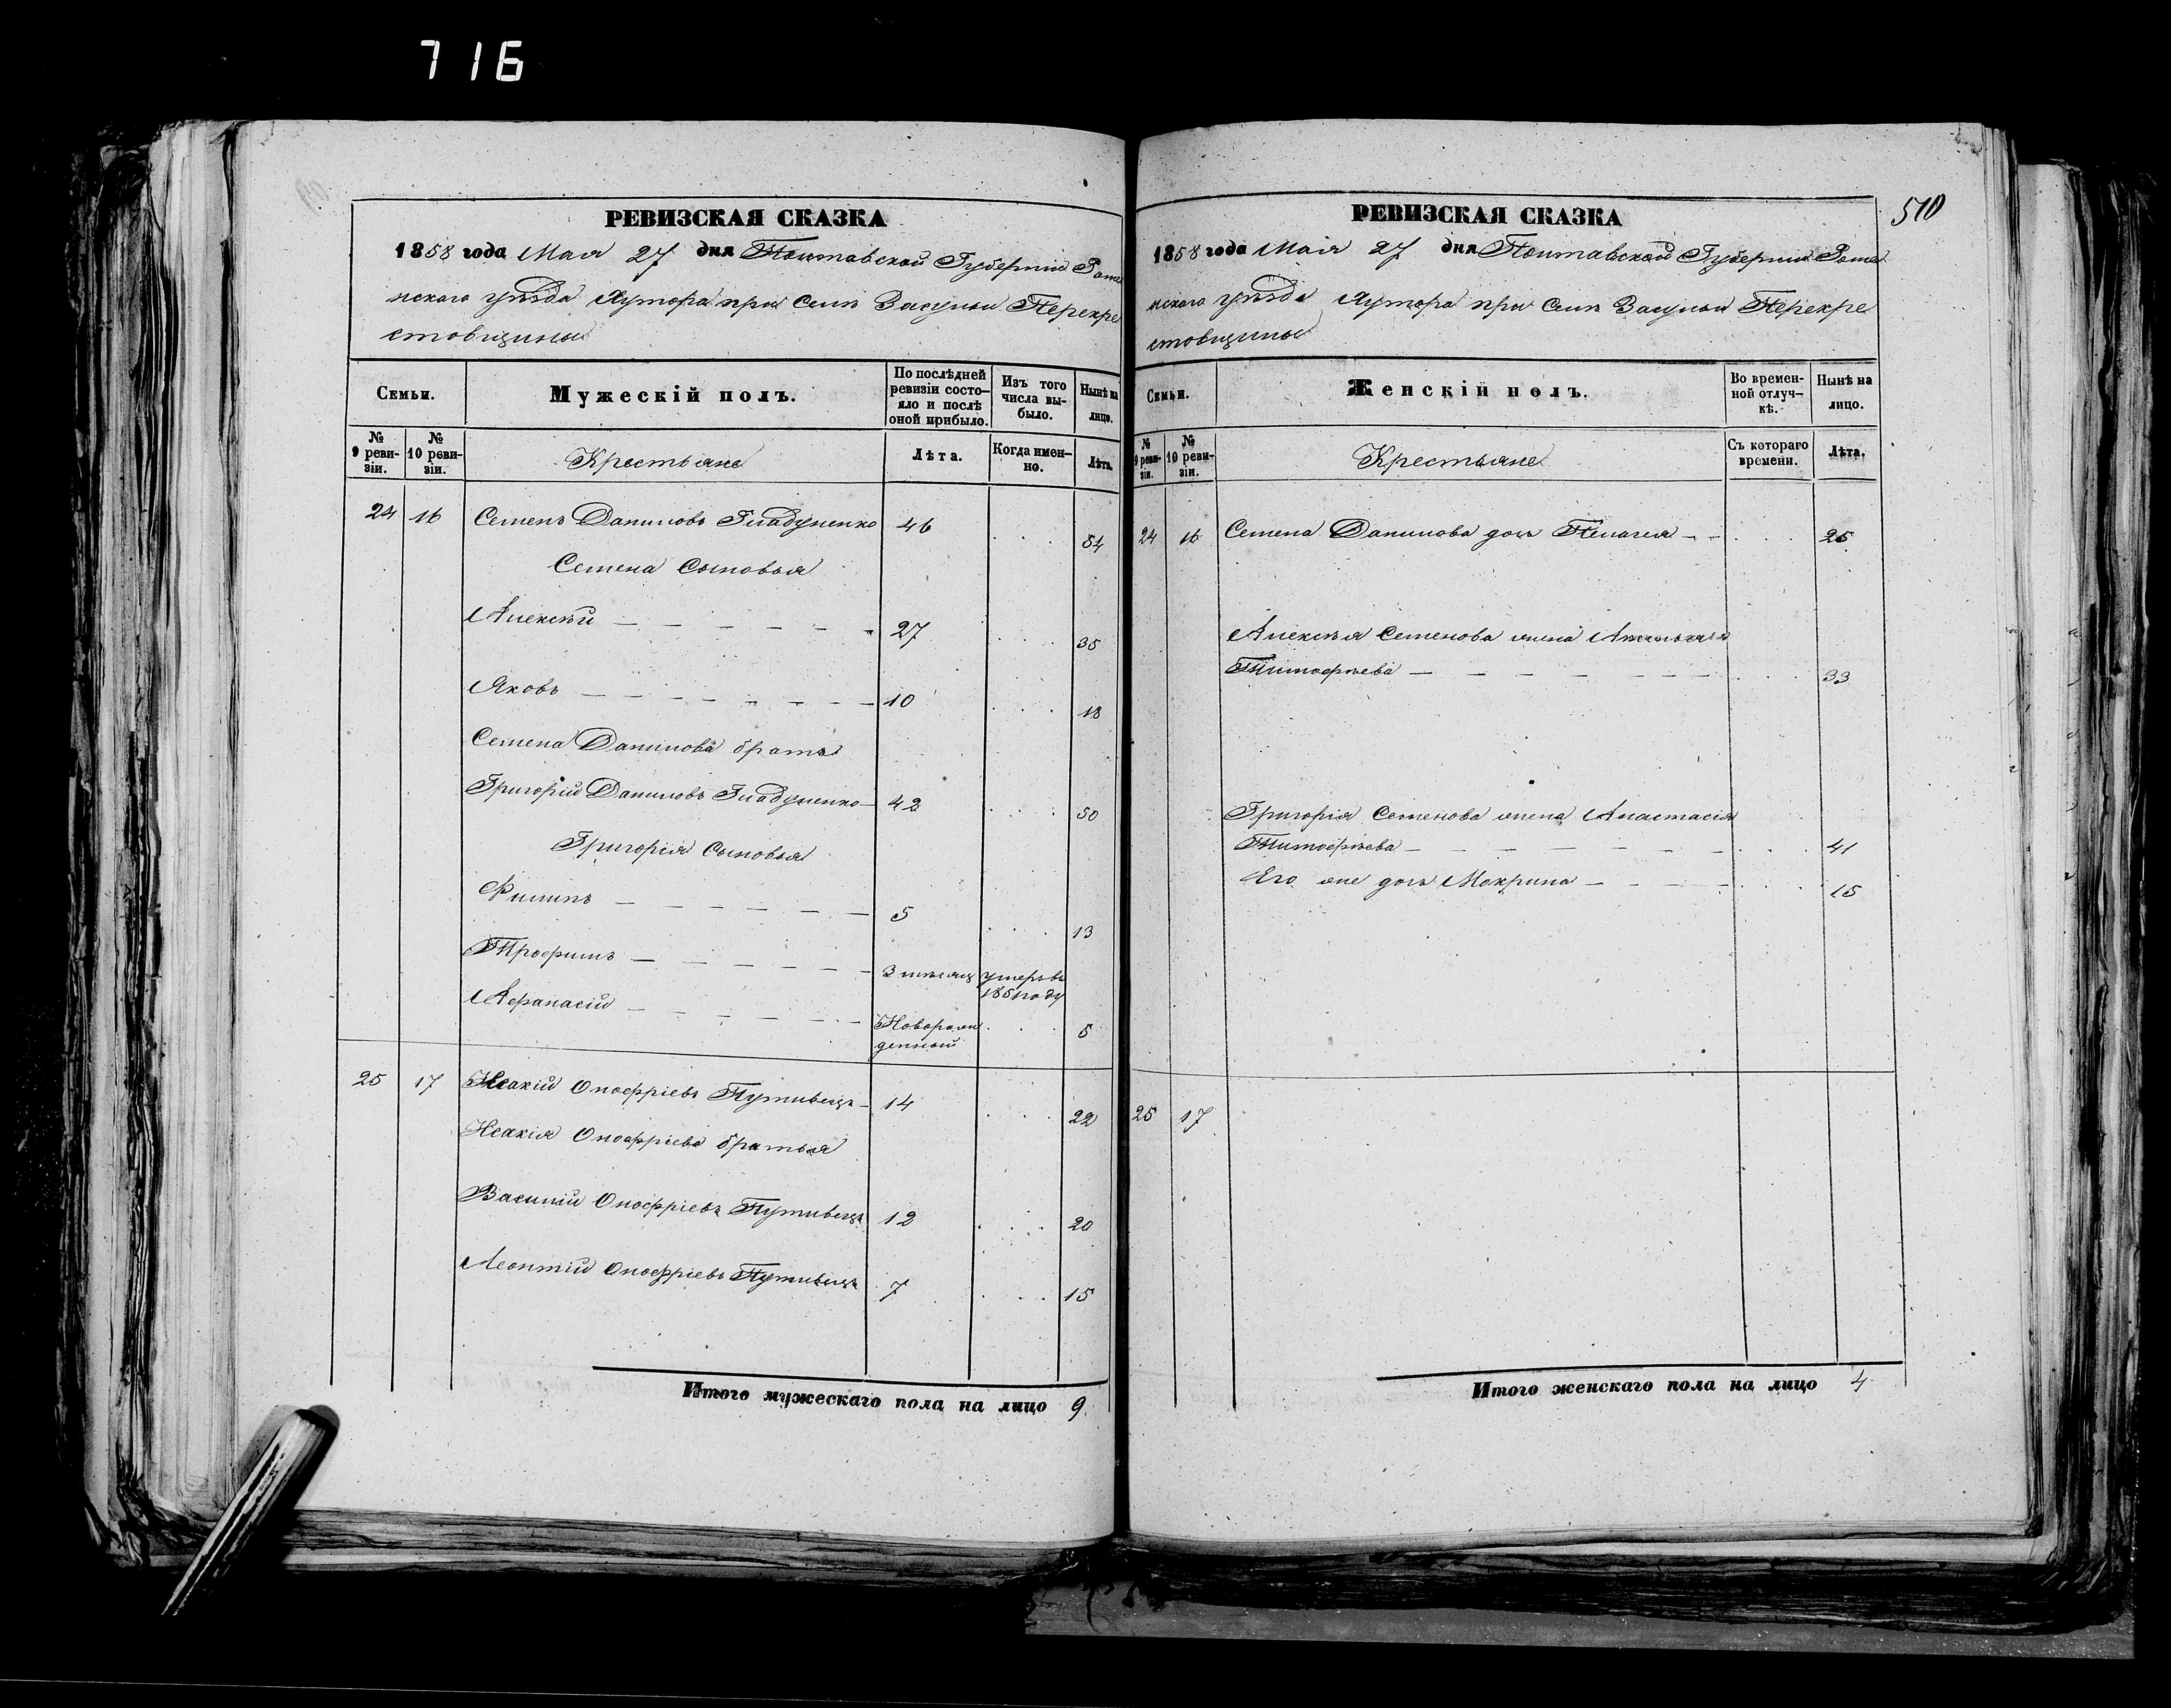 716
РЕВИЗСКАЯ СКАЗКА
1858 года Мая 27 дня Полтавской Губернiи Роме
нскаго уѣзда Хутора при Селѣ Засульи Перекре
стовщины
Семьи.
Мужескiй полъ.
По послѣдней
ревизiи состо-
яло и послѣ
оной прибыло.
Изъ того
числа вы-
было.
Нынѣ на
лицо.
№
9 реви-
зiи.
№
10 реви-
зiи.
Крестьяне
Лѣта.
Когда имен-
но.
Лѣта.
24 16 Семенъ Даниловъ Гладченко 46 . . . 54
Семена Сыновья
Алексѣй 27 . . . 35
Яковъ 10 . . . 18
Семена Данилова братъ
Григорiй Даниловъ Гладченко 42 . . . 50
Григорiя Сыновья
Филипъ 5 . . . 13
Трофимъ 3 мѣсяц умеръ въ
1851 году
Афанасiй Новорож
денный . . . 5
25 17 Исакiй Онофрiевъ Путивецъ 14 . . . 22
Исакiя Онофрiева братья
Василiй Онофрiевъ Путивецъ 12 . . . 20
Леонтiй Онофрiевъ Путивецъ 7 . . . 15
Итого мужескаго пола на лицо 9.
510
РЕВИЗСКАЯ СКАЗКА
1858 года Мая 27 дня Полтавской Губернiи Роме
нскаго уѣзда Хутора при Селѣ Засульи Перекре
стовщины
Семьи.
Женскiй полъ.
Во времен-
ной отлуч-
кѣ.
Нынѣ на
лицо.
№
9 реви-
зiи.
№
10 реви-
зiи.
Крестьяне
Съ котораго
времени.
Лѣта.
24 16 Семена Данилова дочь Пелагея . . . 25
Алексѣя Семенова жена
Тимофѣева . . . 33
Григорiя Семенова жена Анастасiя
Тимофѣева . . . 41
Его же дочь Макрина . . . 15
25 17
Итого женскаго пола на лицо 4